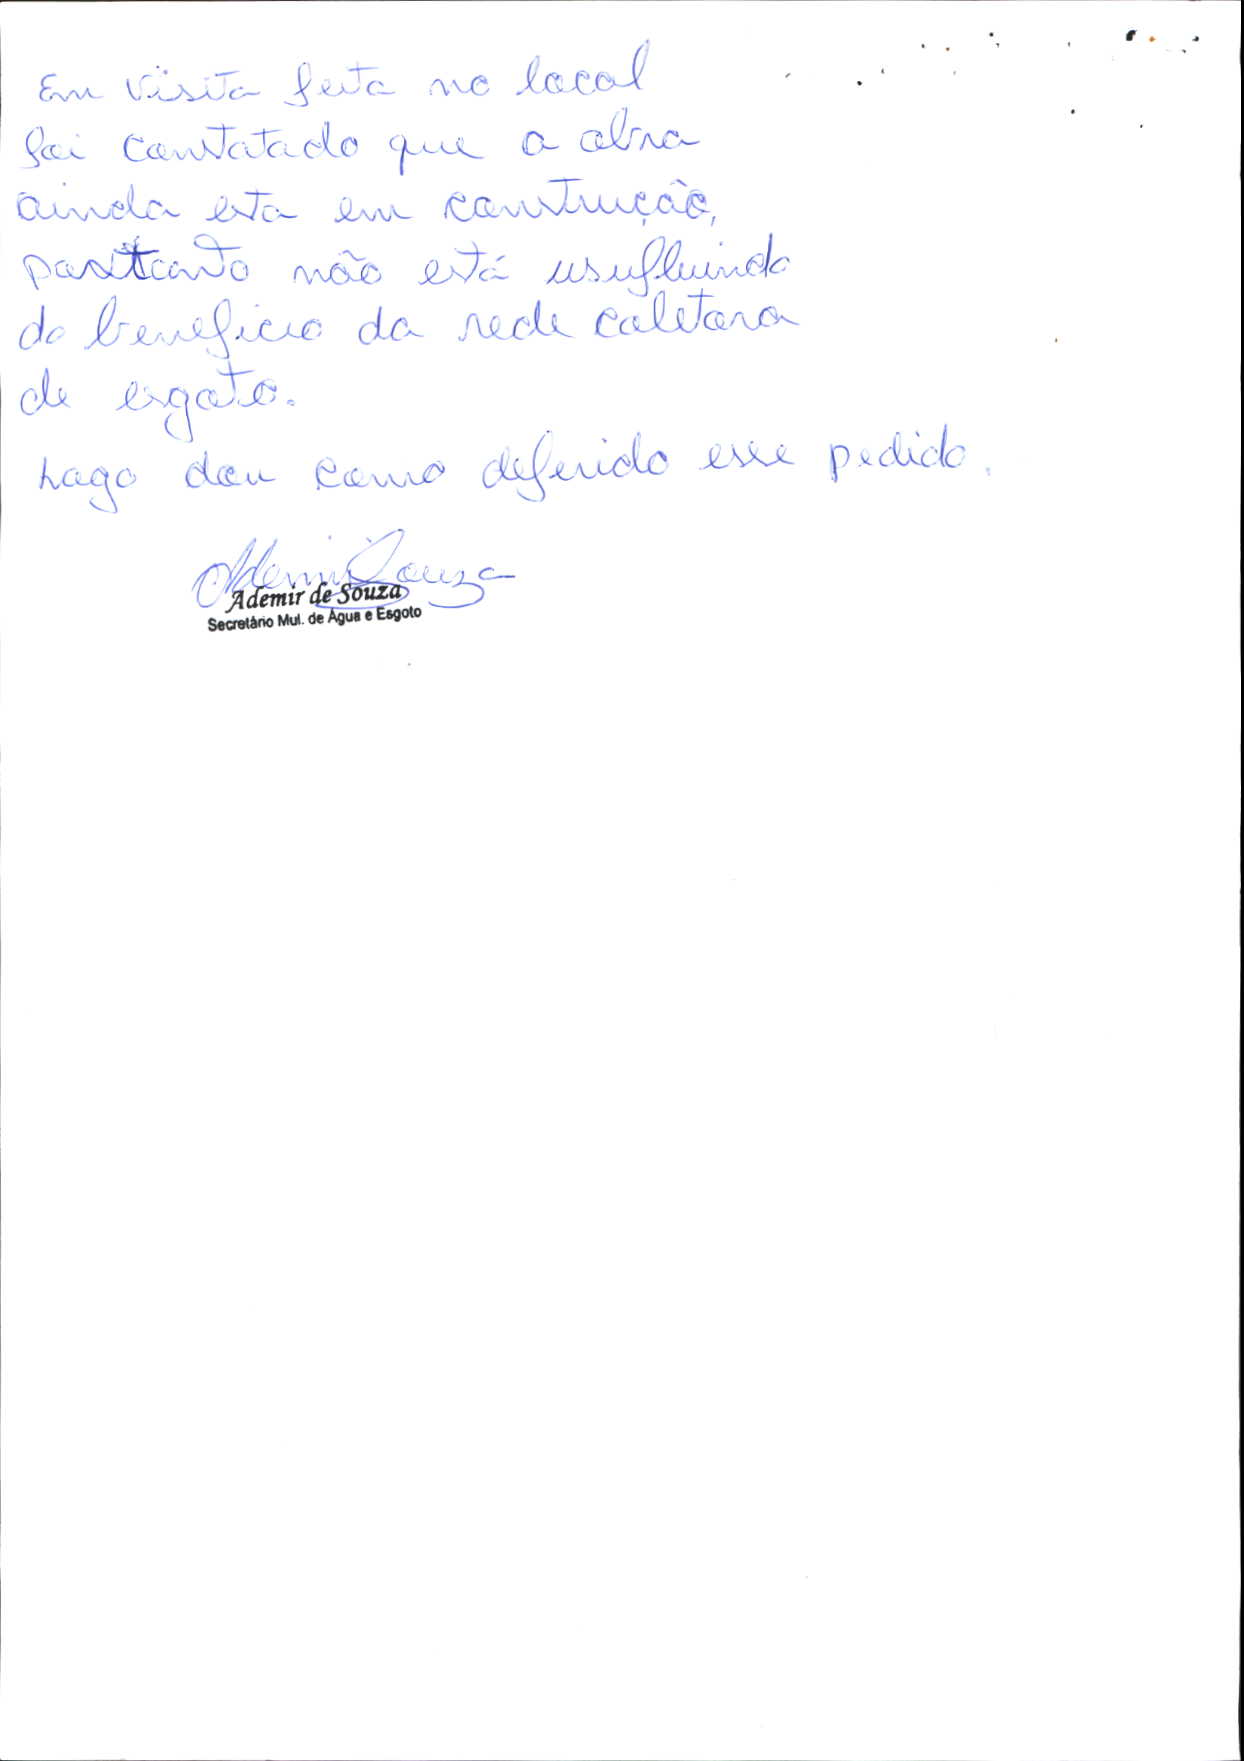 Em visita feita no local
foi constatado que a obra
ainda esta em construção,
portanto não está usufluindo
do beneficio da rede coletora
de esgoto.
Logo dou como deferido esse pedido.
Ademir Souza
Ademir de Souza
Secretário Mul. de Água e Esgoto